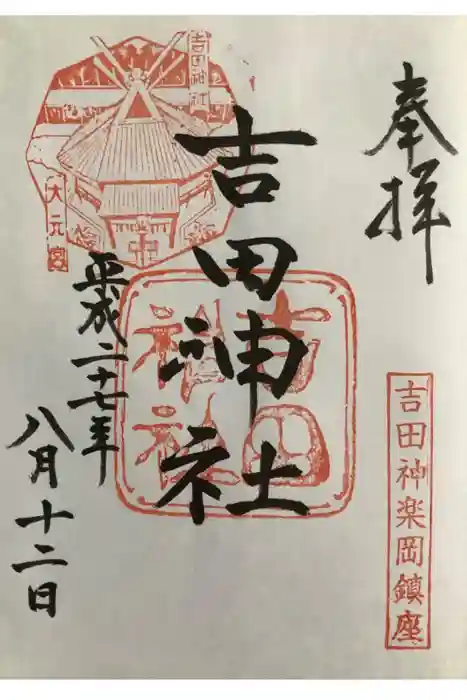 奉拝
吉田神楽岡鎮座
吉田神社
吉田
神社
吉田神社
大元宮
平成二十七年
八月十二日